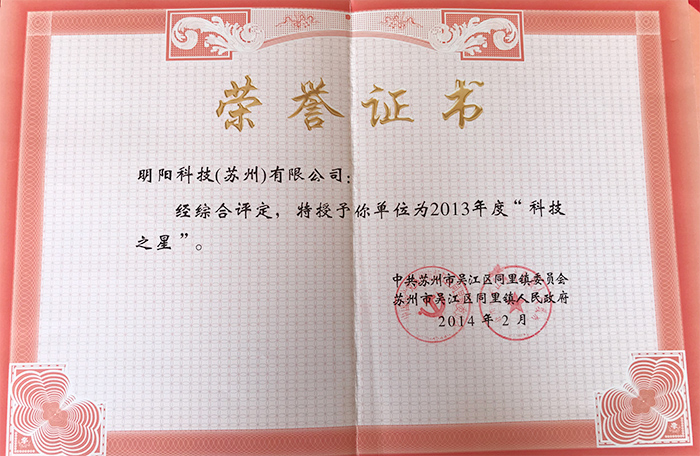 荣誉证书
明阳科技(苏州)有限公司：
经综合评定，特授予你单位为2013年度“科技
之星”。
中共苏州市吴江区同里镇委员会
苏州市吴江区同里镇人民政府
2014年2月